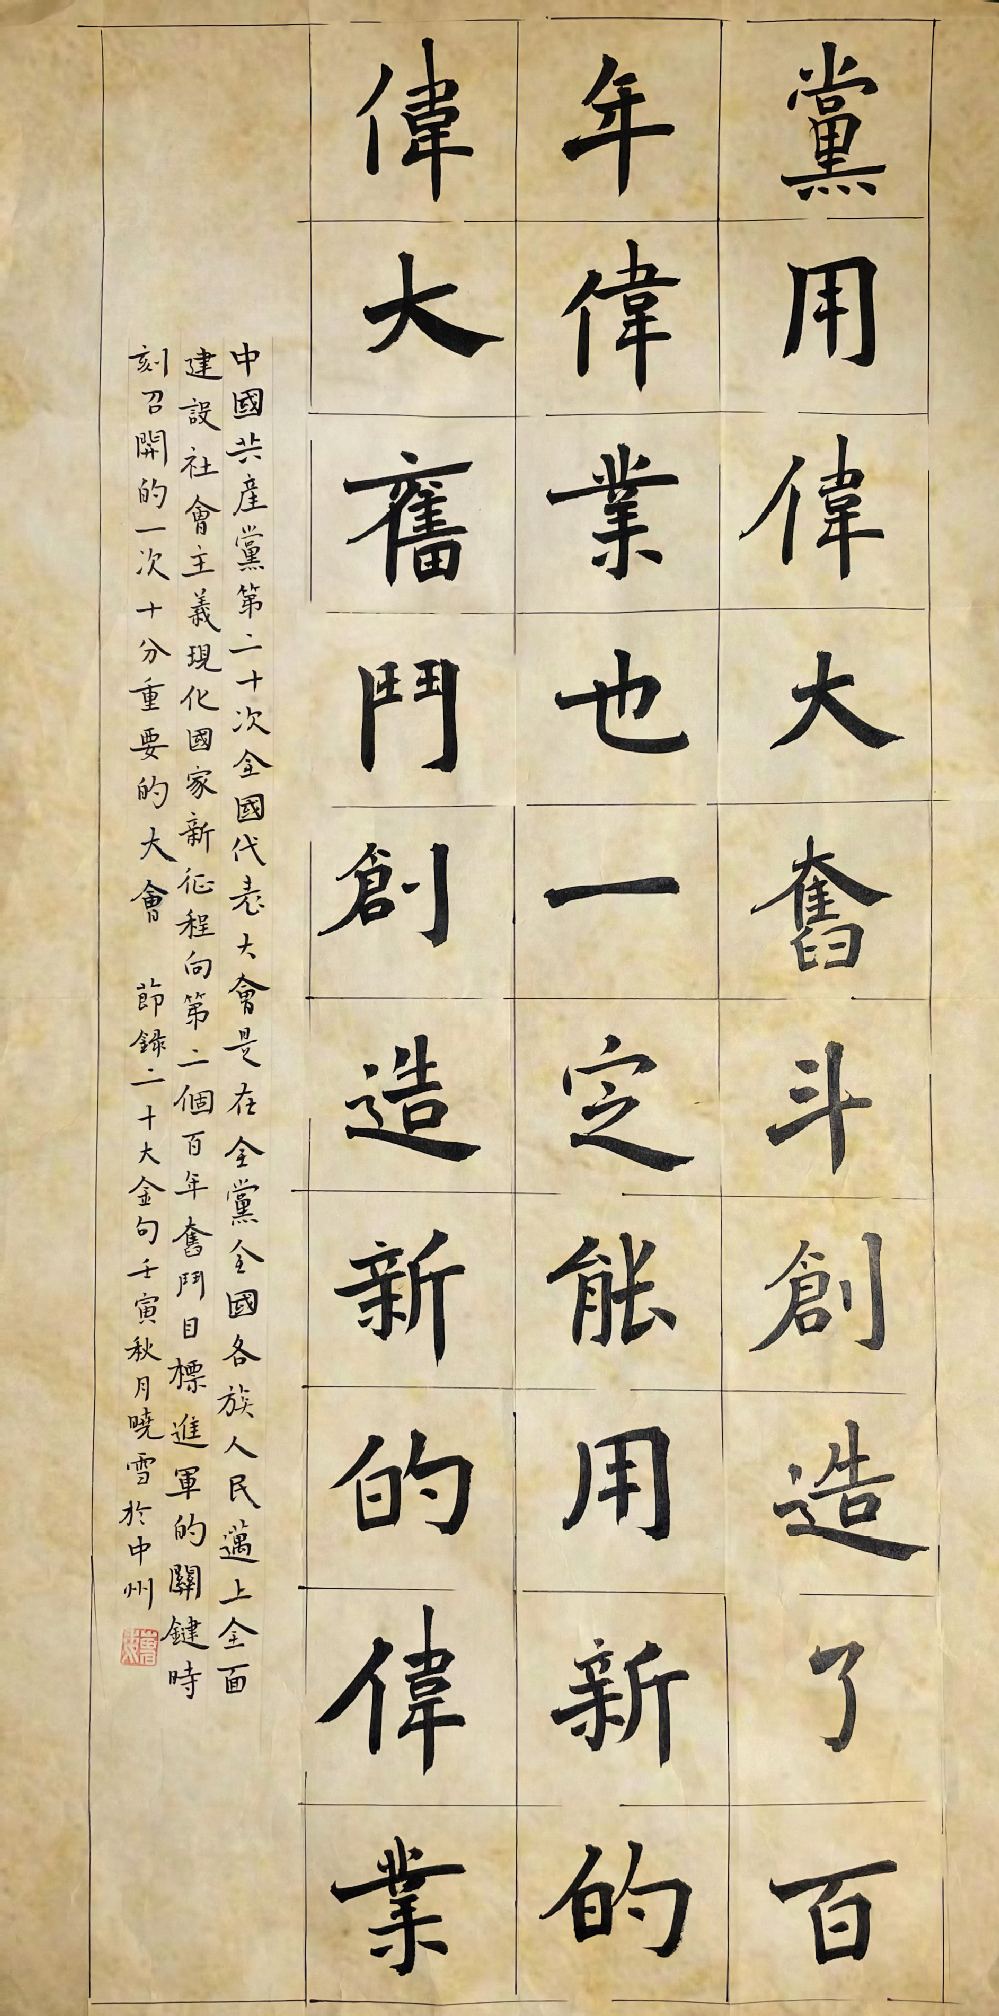 黨用偉大奮斗創造了百
年偉業也一定能用新的
偉大奮鬥創造新的偉業
中國共産黨第二十次全國代表大會是在全黨全國各族人民邁上全面
建設社會主義現化國家新征程向第二個百年奮鬥目標進軍的關鍵時
刻召開的一次十分重要的大會 節錄二十大金句壬寅秋月曉雪於中州